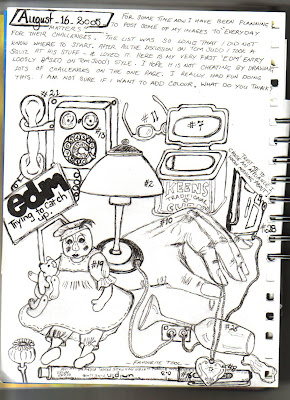 August.16.2005
FOR SOME TIME NOW I HAVE BEEN PLANNING
TO POST SOME OF MY IMAGES TO "EVERYDAY
MATTERS"
FOR THEIR CHALLENGES. THE LIST WAS SO LONG THAT I DID NOT
KNOW WHERE TO START. AFTER ALL THE DISCUSSION ON TOMMY JUDD I TOOK A
AT HIS STUFF & LOVED IT. HERE IS MY VERY FIRST 'EDM' ENTRY
LOOSELY BASED ON TOM JUDD'S STYLE. I HOPE IT IS NOT CHEATING BY DRAWING
LOTS OF CHALLENGES ON THE ONE PAGE. I REALLY HAD FUN DOING
THIS. I AM NOT SURE IF I WANT TO ADD COLOUR, WHAT DO YOU THINK?
#11
#7
#2
KEENS
TRADITIONAL
EDM
Trying to catch
up!
#10
#19
FAVOURITE TOOL
uniball